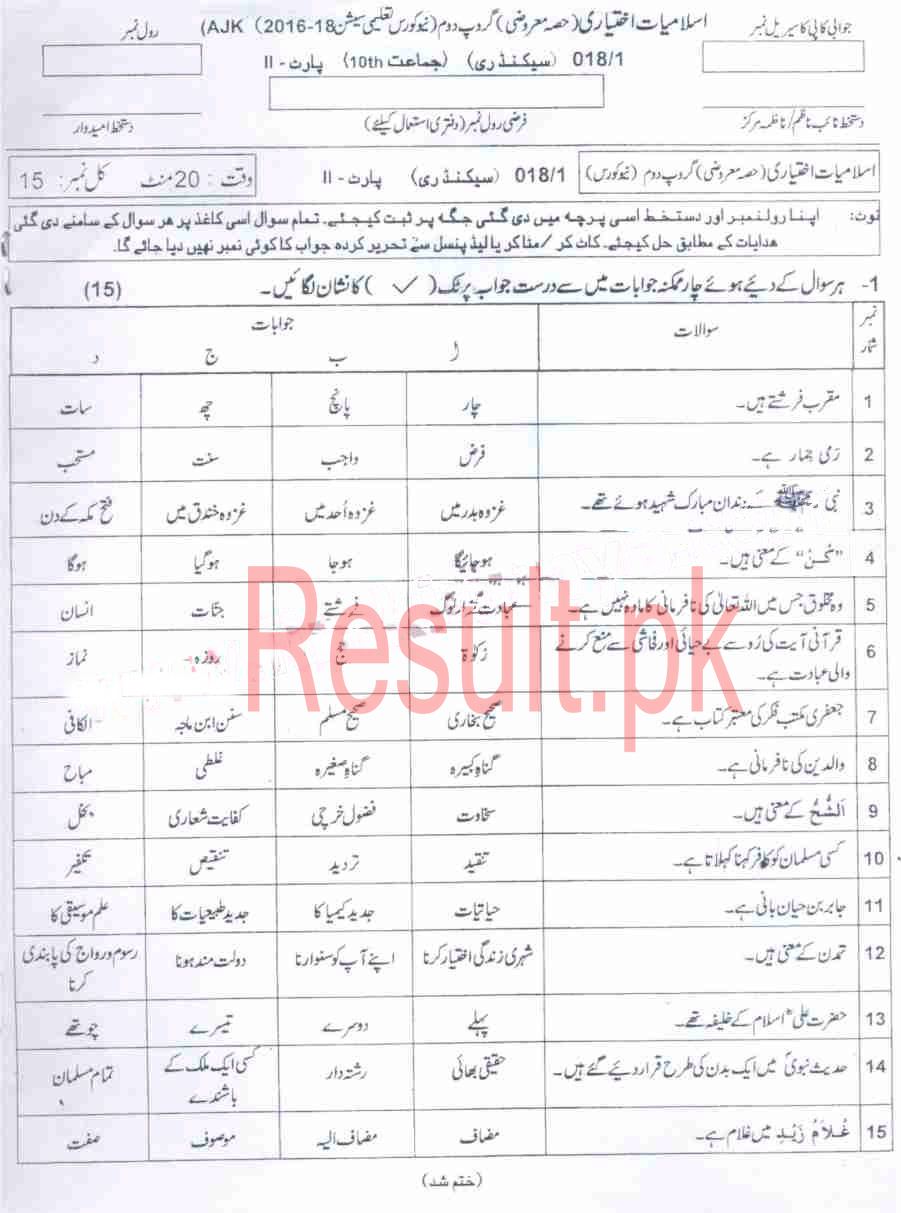 جوابی کاپی کا سیریل نمبر
اسلامیات اختیاری (حصہ معروضی) گروپ دوم (نیو کورس تعلیمی سیشن 18-2016) (AJK
رول نمبر
018/1 (سیکنڈری) (جماعت 10th) پارٹ - II
دستخط نائب ناظم/ناظمہ مرکز
فرضی رول نمبر (دفتری استعمال کیلئے)
دستخط امیدوار
اسلامیات اختیاری (حصہ معروضی) گروپ دوم (نیو کورس) 018/1 (سیکنڈری) پارٹ - II وقت : 20 منٹ کل نمبر: 15
نوٹ: اپنا رولنمبر اور دستخط اسی پرچہ میں دی گئی جگہ پر ثبت کیجئے۔ تمام سوال اسی کاغذ پر ہر سوال کے سامنے دی گئی
ہدایات کے مطابق حل کیجئے۔ کاٹ کر / مٹا کر یا لیڈ پنسل سے تحریر کردہ جواب کا کوئی نمبر نہیں دیا جائے گا۔
1- ہر سوال کے دیئے ہوئے چار ممکنہ جوابات میں سے درست جواب پر ٹک ( ✓ ) کا نشان لگائیں۔ (15)
نمبر شمار سوالات جوابات
ا ب ج د
1 مقرب فرشتے ہیں۔ چار پانچ چھ سات
2 رَمی جمار ہے۔ فرض واجب سنت مستحب
3 نبی ﷺ کے دندان مبارک شہید ہوئے تھے۔ غزوہ بدر میں غزوہ اُحد میں غزوہ خندق میں فتح مکہ کے دن
4 "کُنْ" کے معنی ہیں۔ ہو جائیگا ہو جا ہو گیا ہو گا
5 وہ مخلوق جس میں اللہ تعالیٰ کی نافرمانی کا مادہ نہیں ہے۔ عبادت گزار لوگ فرشتے جنّات انسان
6 قرآنی آیت کی رُو سے بے حیائی اور فاشی سے منع کرنے زکوٰۃ حج روزہ نماز
والی عبادت ہے۔
7 جعفری مکتب فکر کی معتبر کتاب ہے۔ صحیح بخاری صحیح مسلم سنن ابن ماجہ الکافی
8 والدین کی نافرمانی ہے۔ گناہ کبیرہ گناہ صغیرہ غلطی مباح
9 اَلشُّحُّ کے معنی ہیں۔ سخاوت فضول خرچی کفایت شعاری بخل
10 کسی مسلمان کو کافر کہنا کہلاتا ہے۔ تنقید تردید تنقیص تکفیر
11 جابر بن حیان بانی ہے۔ حیاتیات جدید کیمیا کا جدید طبیعیات کا علم موسیقی کا
12 تمدن کے معنی ہیں۔ شہری زندگی اختیار کرنا اپنے آپ کو سنوارنا دولت مند ہونا رسوم و رواج کی پابندی
کرنا
13 حضرت علیؓ اسلام کے خلیفہ تھے۔ پہلے دوسرے تیسرے چوتھے
14 حدیث نبویؐ میں ایک بدن کی طرح قرار دیئے گئے ہیں۔ حقیقی بھائی رشتہ دار کسی ایک ملک کے تمام مسلمان
باشندے
15 غُلَامُ زَیْدٍ میں غلام ہے۔ مضاف مضاف الیہ موصوف صفت
(ختم شد)
Result.pk